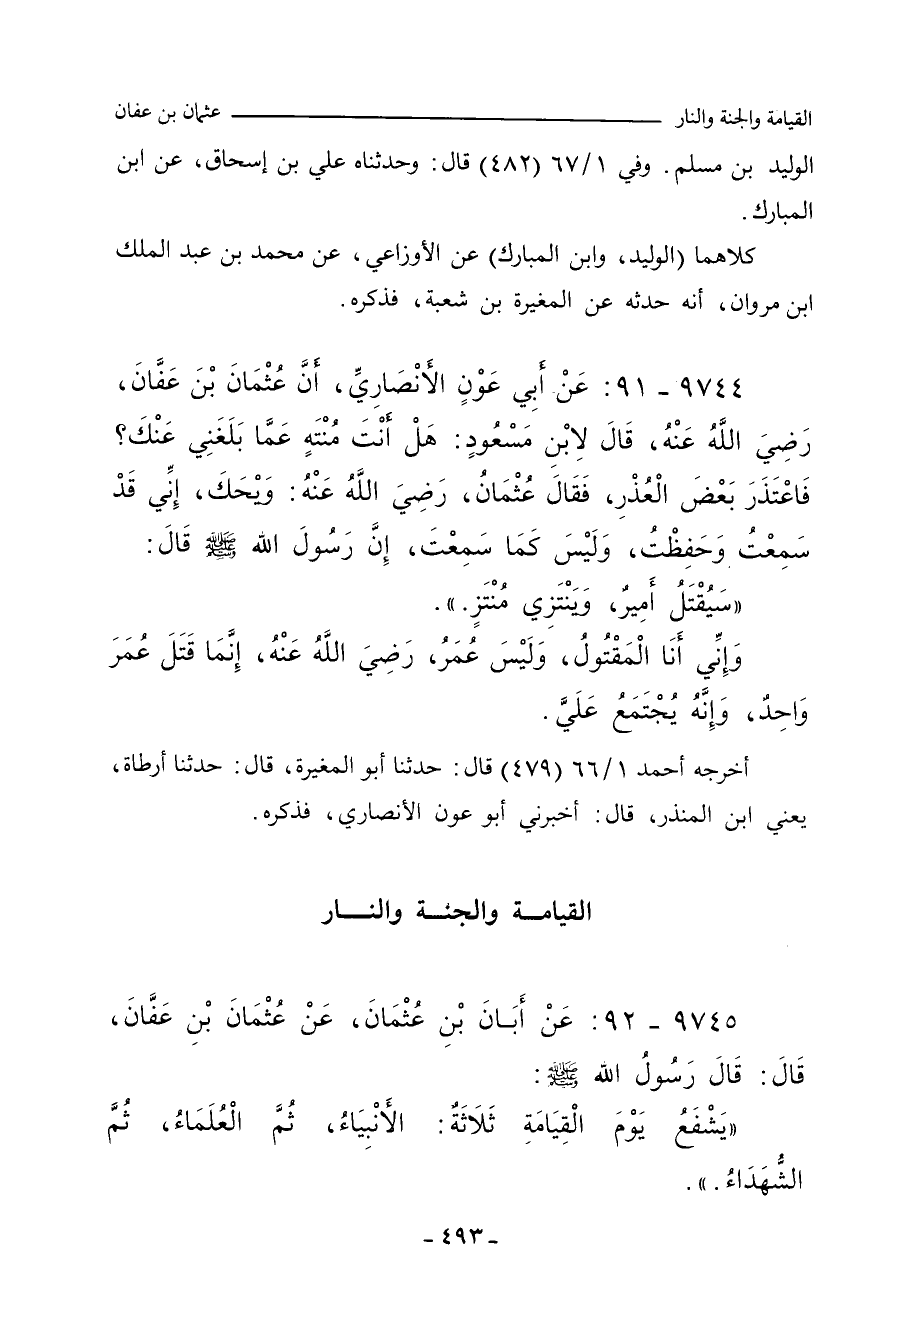 القيامة والجنة والنار ــــــــــــــــــــ عثمان بن عفان
الوليد بن مسلم. وفي ١/ ٦٧ (٤٨٢) قال: وحدثناه علي بن إسحاق، عن ابن
المبارك.
كلاهما (الوليد، وابن المبارك) عن الأوزاعي، عن محمد بن عبد الملك
ابن مروان، أنه حدثه عن المغيرة بن شعبة، فذكره.
٩٧٤٤ ـ ٩١: عَنْ أَبِي عَوْنٍ الأَنْصَارِيِّ، أَنَّ عُثْمَانَ بْنَ عَفَّانَ،
رَضِيَ اللَّهُ عَنْهُ، قَالَ لِابْنِ مَسْعُودٍ: هَلْ أَنْتَ مُنْتَهٍ عَمَّا بَلَغَنِي عَنْكَ؟
فَاعْتَذَرَ بَعْضَ الْعُذْرِ، فَقَالَ عُثْمَانُ، رَضِيَ اللَّهُ عَنْهُ: وَيْحَكَ، إِنِّي قَدْ
سَمِعْتُ وَحَفِظْتُ، وَلَيْسَ كَمَا سَمِعْتَ، إِنَّ رَسُولَ الله ﷺ قَالَ:
«سَيُقْتَلُ أَمِيرٌ، وَيَنْتَزِي مُنْتَزٍ.».
وَإِنِّي أَنَا الْمَقْتُولُ، وَلَيْسَ عُمَرُ، رَضِيَ اللَّهُ عَنْهُ، إِنَّمَا قَتَلَ عُمَرَ
وَاحِدٌ، وَإِنَّهُ يُجْتَمَعُ عَلَيَّ.
أخرجه أحمد ١/ ٦٦ (٤٧٩) قال: حدثنا أبو المغيرة، قال: حدثنا أرطاة،
يعني ابن المنذر، قال: أخبرني أبو عون الأنصاري، فذكره.
القيامـــة والجنـــة والنـــــار
٩٧٤٥ ـ ٩٢: عَنْ أَبَــانَ بْنِ عُثْمَانَ، عَنْ عُثْمَانَ بْنِ عَفَّانَ،
قَالَ: قَالَ رَسُولُ الله ﷺ:
«يَشْفَعُ يَوْمَ الْقِيَامَةِ ثَلَاثَةٌ: الأَنْبِيَاءُ، ثُمَّ الْعُلَمَاءُ، ثُمَّ
الشُّهَدَاءُ.».
ـ ٤٩٣ ـ